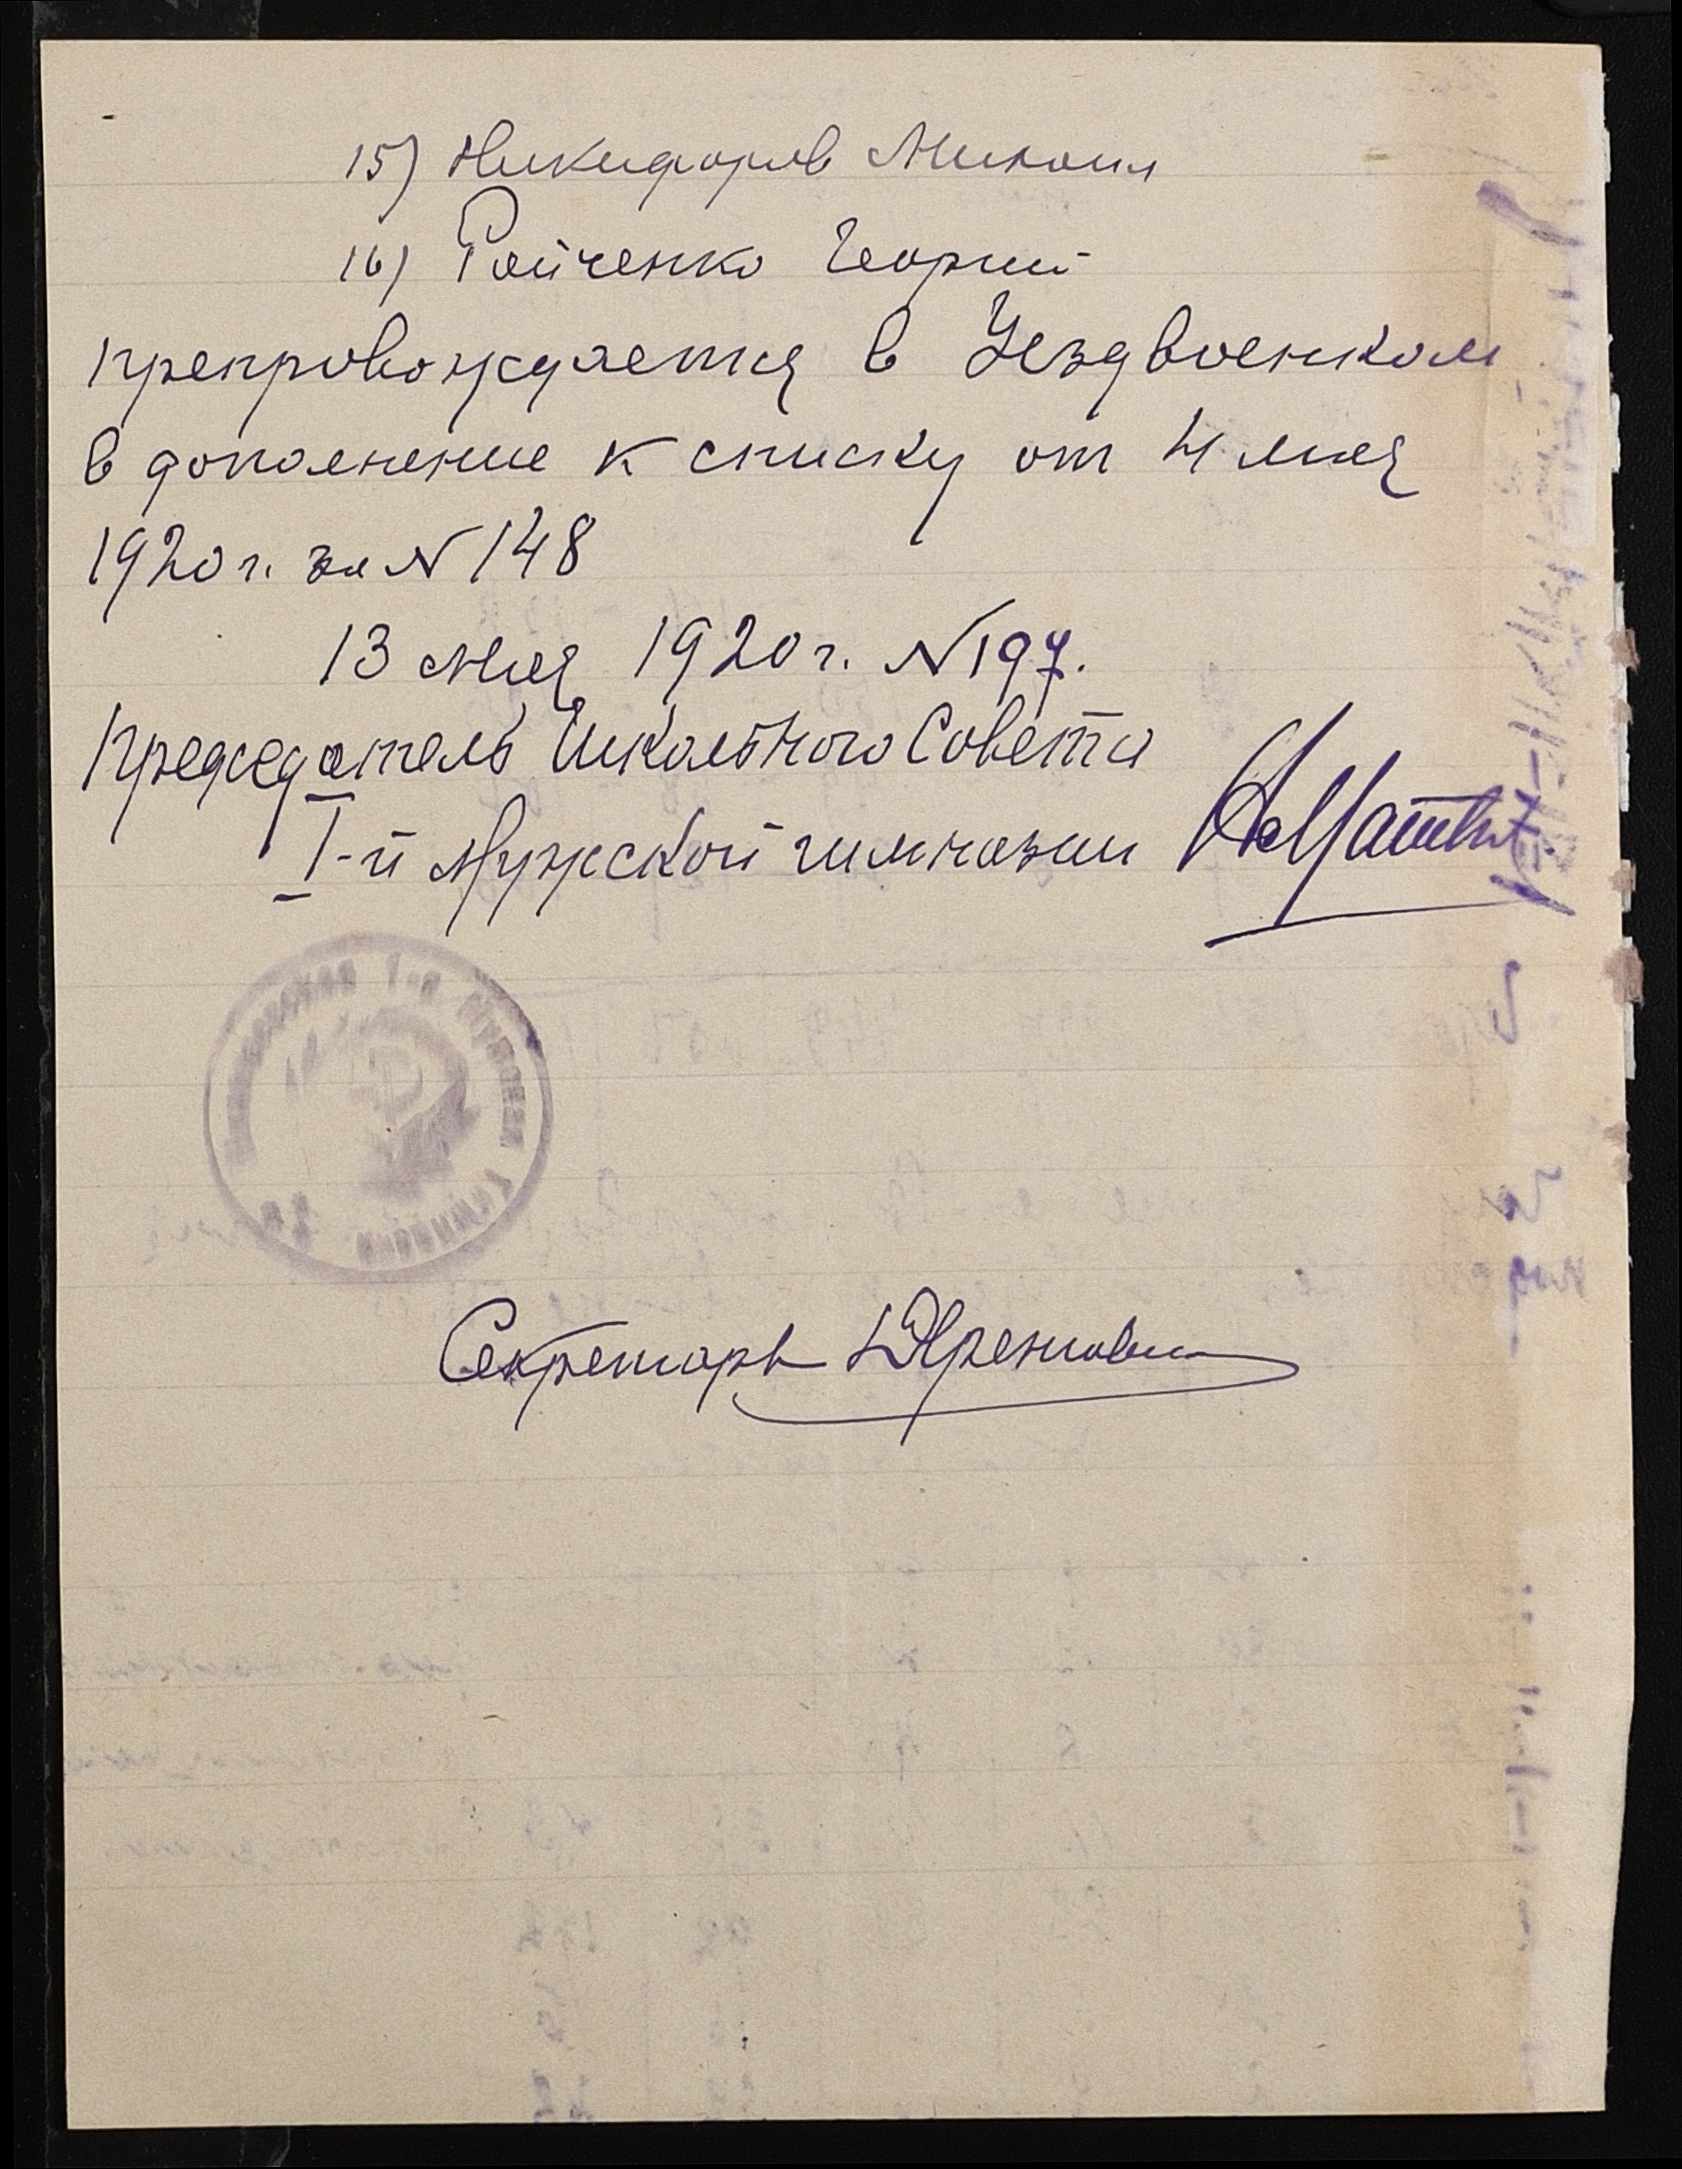 15) Никифоров Михаил
16) Райченко Георгий
препровождается в Уездвоенком
в дополнение к списку от 4 мая
1920 г. за N 148
13 мая 1920 г. N 197.
Председатель Школьного Совета
I-й мужской гимназии
1-я Мужская
Секретарь